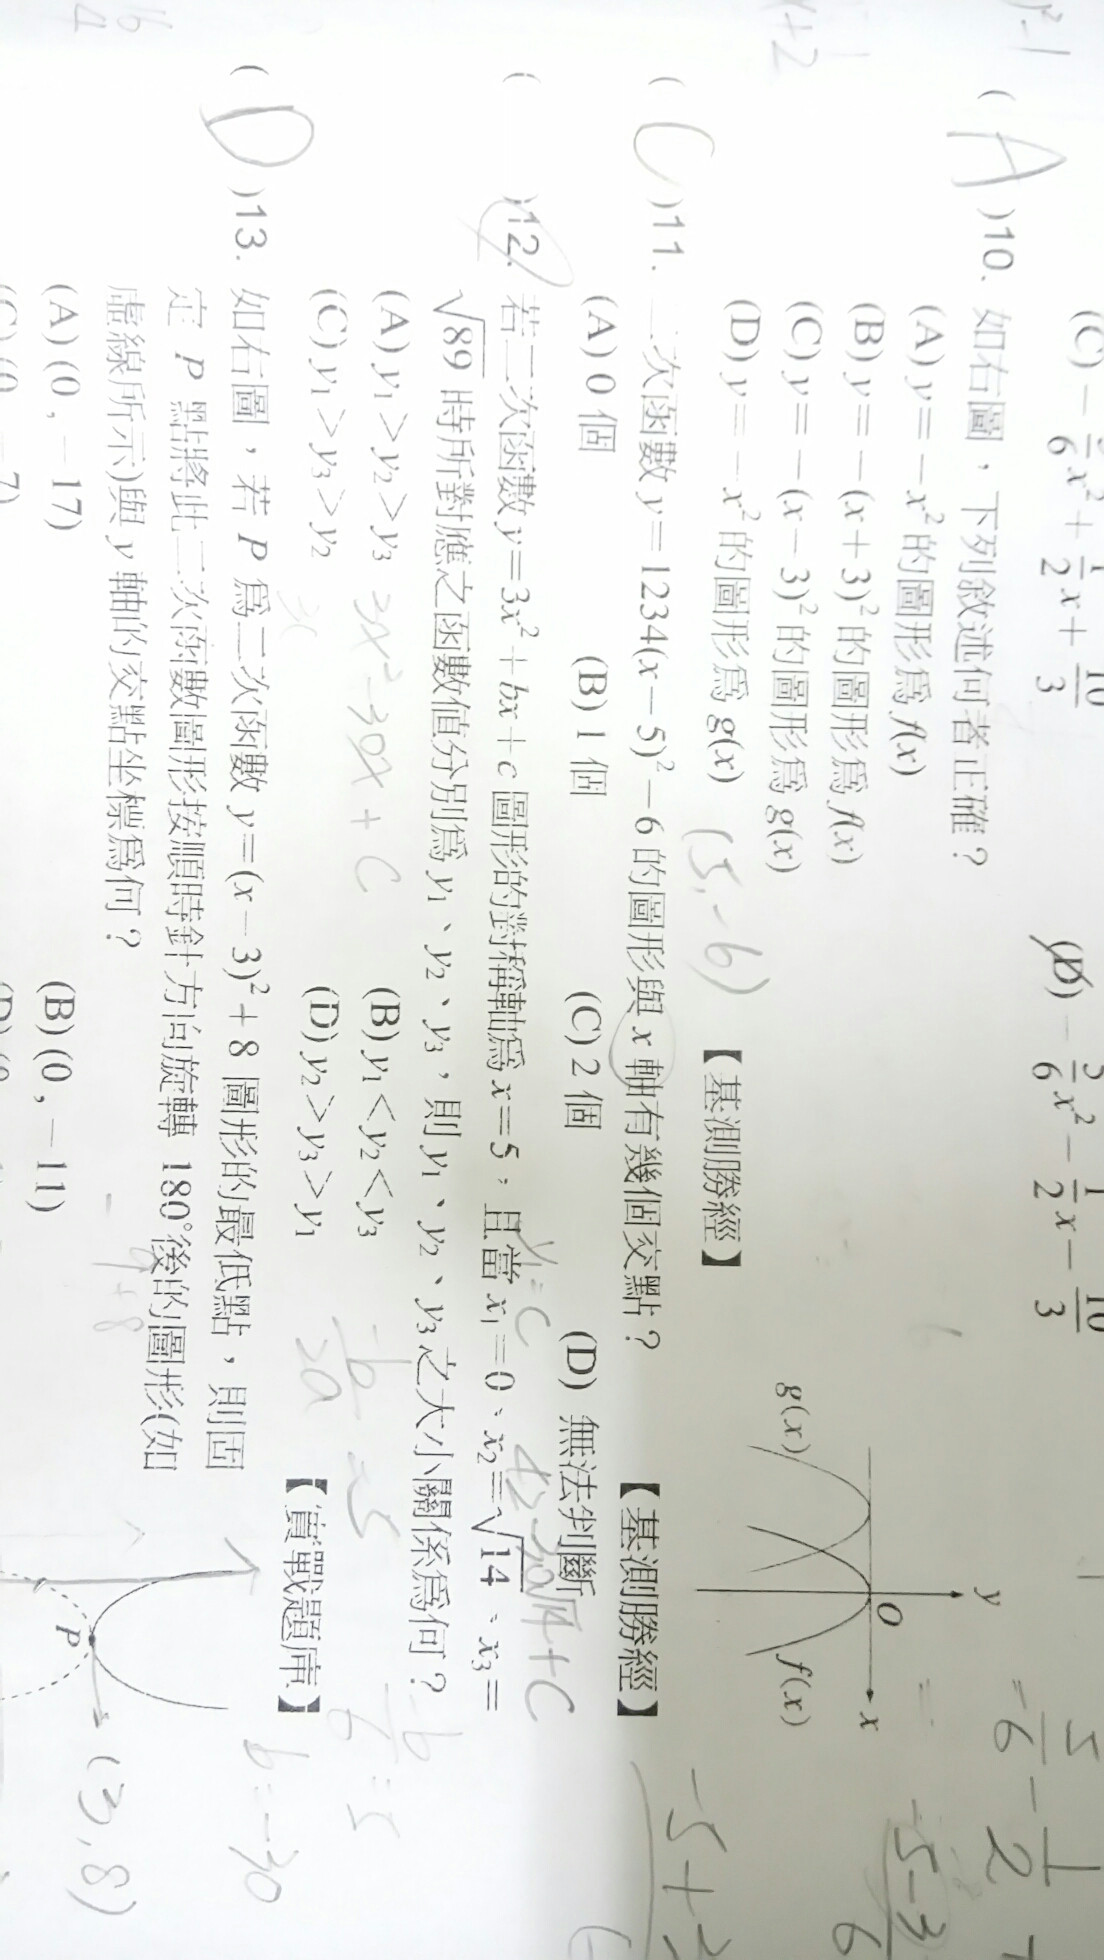 (C) −5/6x²+1/2x+10/3
(D) −5/6x²−1/2x−10/3
( A )10. 如右圖，下列敘述何者正確？
(A) y=−x²的圖形爲 f(x)
(B) y=−(x+3)²的圖形爲 f(x)
(C) y=−(x−3)²的圖形爲 g(x)
(D) y=−x²的圖形爲 g(x)
(5,−6)
【基測勝經】
g(x)
f(x)
O
x
y
( C )11. 二次函數 y=1234(x−5)²−6 的圖形與 x 軸有幾個交點？
(A) 0 個
(B) 1 個
(C) 2 個
(D) 無法判斷
【基測勝經】
( )12. 若二次函數 y=3x²+bx+c 圖形的對稱軸爲 x=5，且當 x₁=0、x₂=√14、x₃=
√89 時所對應之函數值分別爲 y₁、y₂、y₃，則 y₁、y₂、y₃之大小關係爲何？
(A) y₁>y₂>y₃
(B) y₁<y₂<y₃
(C) y₁>y₃>y₂
(D) y₂>y₃>y₁
【實戰題庫】
3x²−30x+C
y₁=C
−b/2a=5
−b/6=5
b=−30
( D )13. 如右圖，若 P 爲二次函數 y=(x−3)²+8 圖形的最低點，則固
定 P 點將此二次函數圖形按順時針方向旋轉 180°後的圖形(如
虛線所示)與 y 軸的交點坐標爲何？
(A) (0,−17)
(B) (0,−11)
P
(3,8)